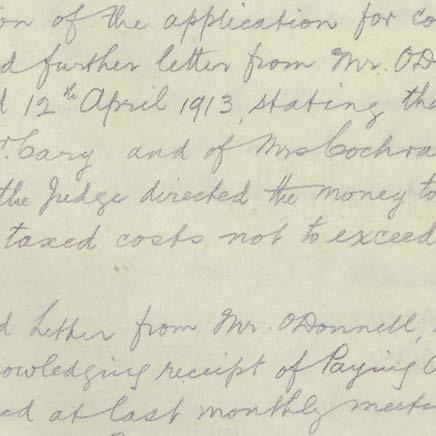 ion of the application for co
d further letter from Mr. O'D
d 12th April 1913, stating tha
r. Cary and of Mrs Cochra
the Judge directed the money to
taxed costs not to exceed
d Letter from Mr. O'Donnell,
nowledging receipt of Paying O
ed at last monthly meeti